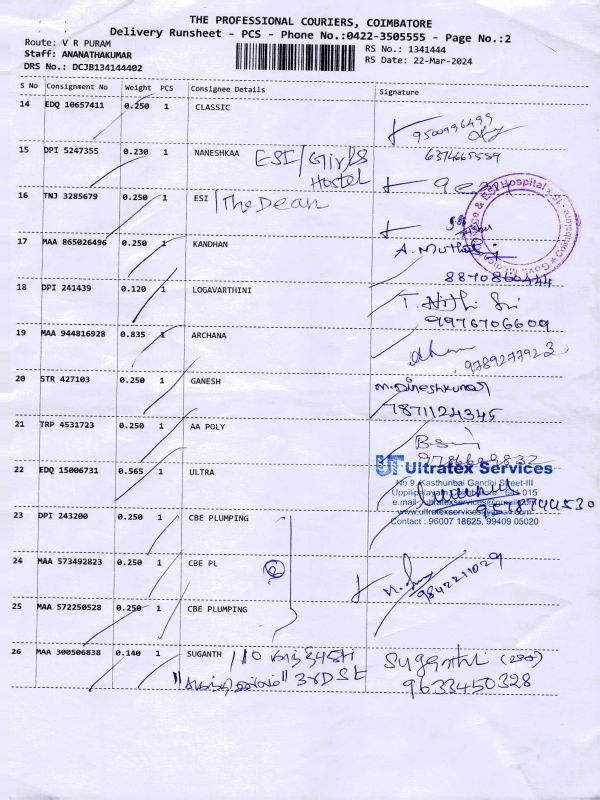 THE PROFESSIONAL COURIERS, COIMBATORE
Delivery Runsheet - PCS - Phone No.:0422-3505555 - Page No.:2
Route: V R PURAM
RS No.: 1341444
Staff: ANANATHAKUMAR
RS Date: 22-Mar-2024
DRS No.: DCJB134144402
S No Consignment No Weight PCS Consignee Details Signature
14 EDQ 10657411 0.250 1 CLASSIC
9500996499
15 DPI 5247355 0.230 1 NANESHKAA ESI/Girls 6374665559
Hostel
16 TNJ 3285679 0.250 1 ESI /The Dean
17 MAA 865026496 0.250 1 KANDHAN A. Muthu
8870860444
18 DPI 241439 0.120 1 LOGAVARTHINI T. Nithi Sri
9976706609
19 MAA 944816928 0.835 1 ARCHANA
9789277923
20 STR 427103 0.250 1 GANESH M. Dineshkumar
7871124345
21 TRP 4531723 0.250 1 AA POLY
22 EDQ 15006731 0.565 1 ULTRA
UT Ultratex Services
No.9, Kasthuribai Gandhi Street-III
015
Contact : 96007 18625, 99409 05020
23 DPI 243200 0.250 1 CBE PLUMPING
24 MAA 573492823 0.250 1 CBE PL
9842211029
25 MAA 572250528 0.250 1 CBE PLUMPING
26 MAA 300506838 0.140 1 SUGANTH /110 Suganthi
3rd St 9633450328